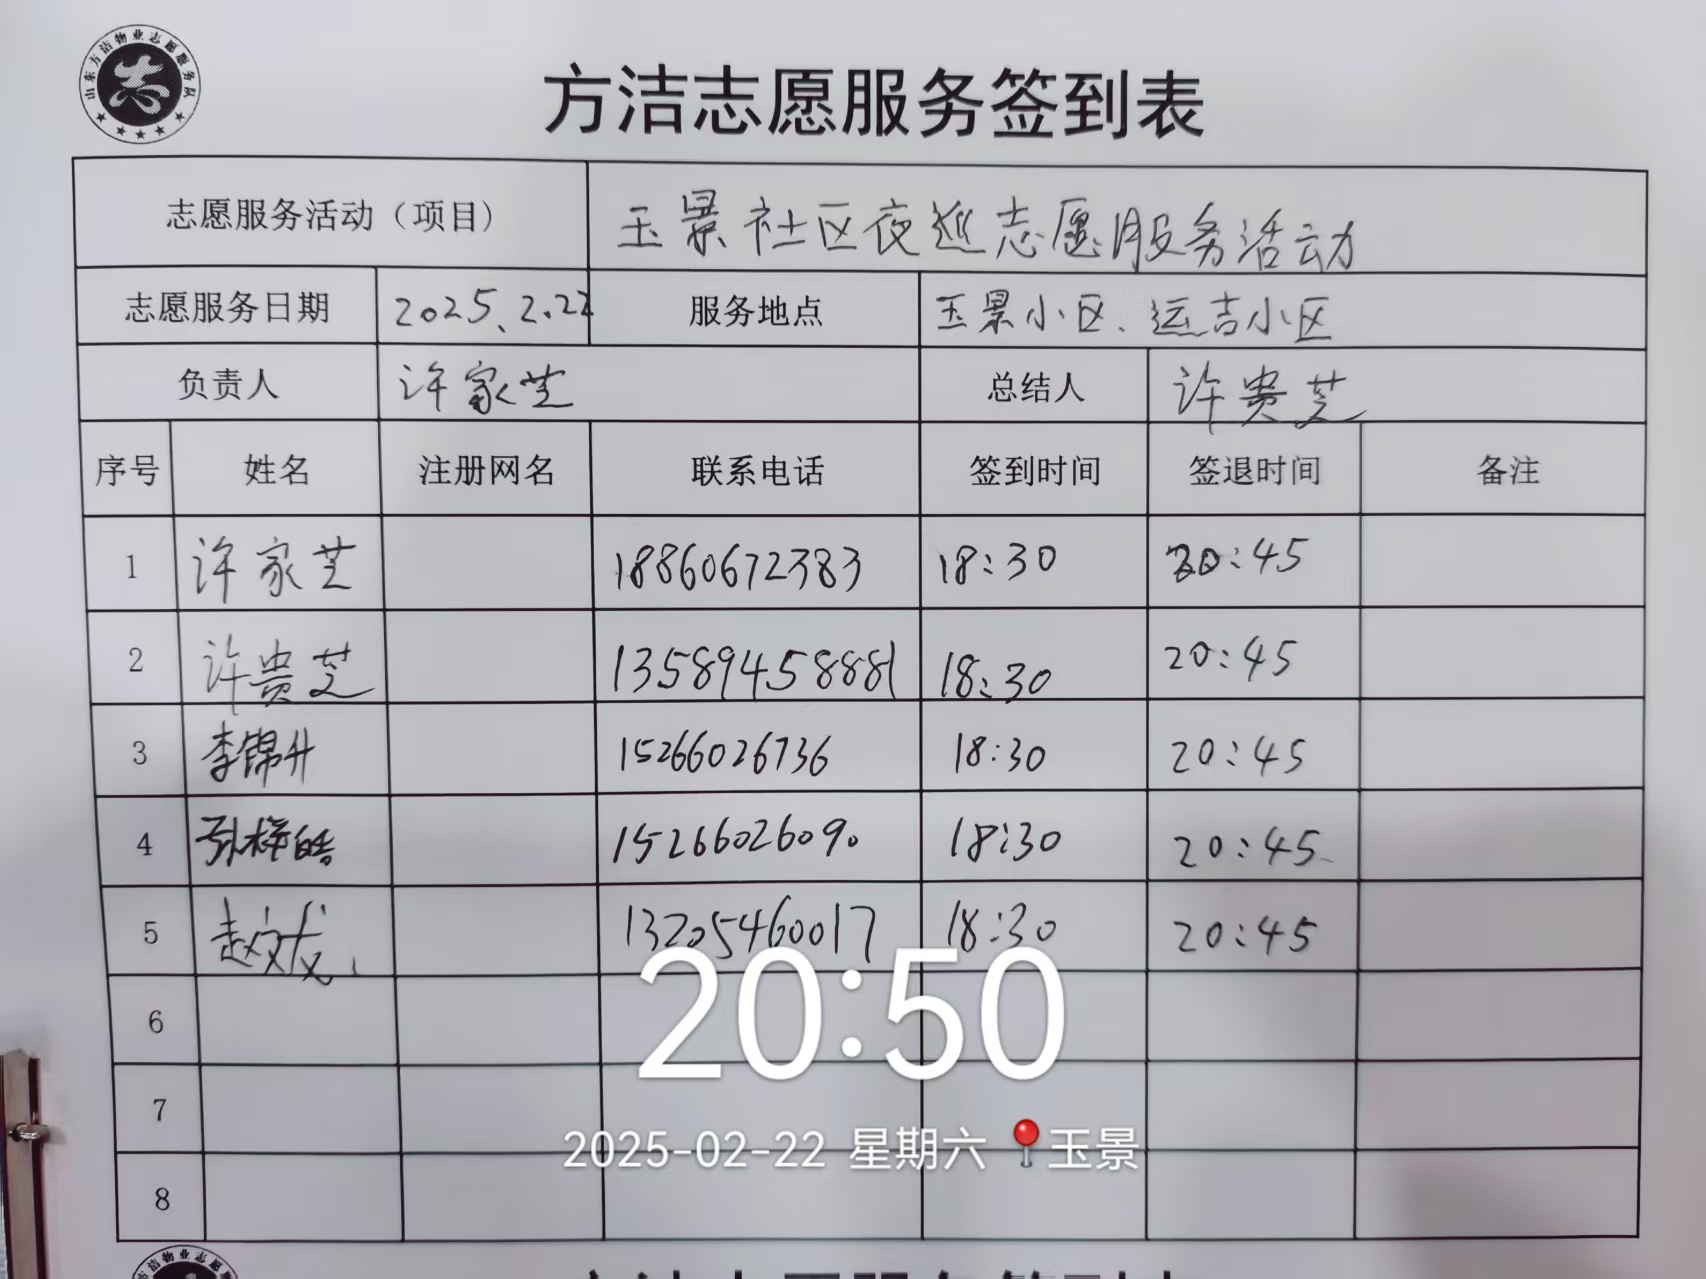 山东方洁物业志愿服务队
志
方洁志愿服务签到表
志愿服务活动（项目） 玉景社区夜巡志愿服务活动
志愿服务日期 2025.2.22 服务地点 玉景小区、运吉小区
负责人 许家芝 总结人 许贵芝
序号 姓名 注册网名 联系电话 签到时间 签退时间 备注
1 许家芝 18860672383 18:30 20:45
2 许贵芝 13589458881 18:30 20:45
3 李锦升 15266026736 18:30 20:45
4 孙祥皓 15266026090 18:30 20:45
5 赵文龙 13205460017 18:30 20:45
6
7
8
20:50
2025-02-22 星期六 玉景
方洁志愿服务签到表